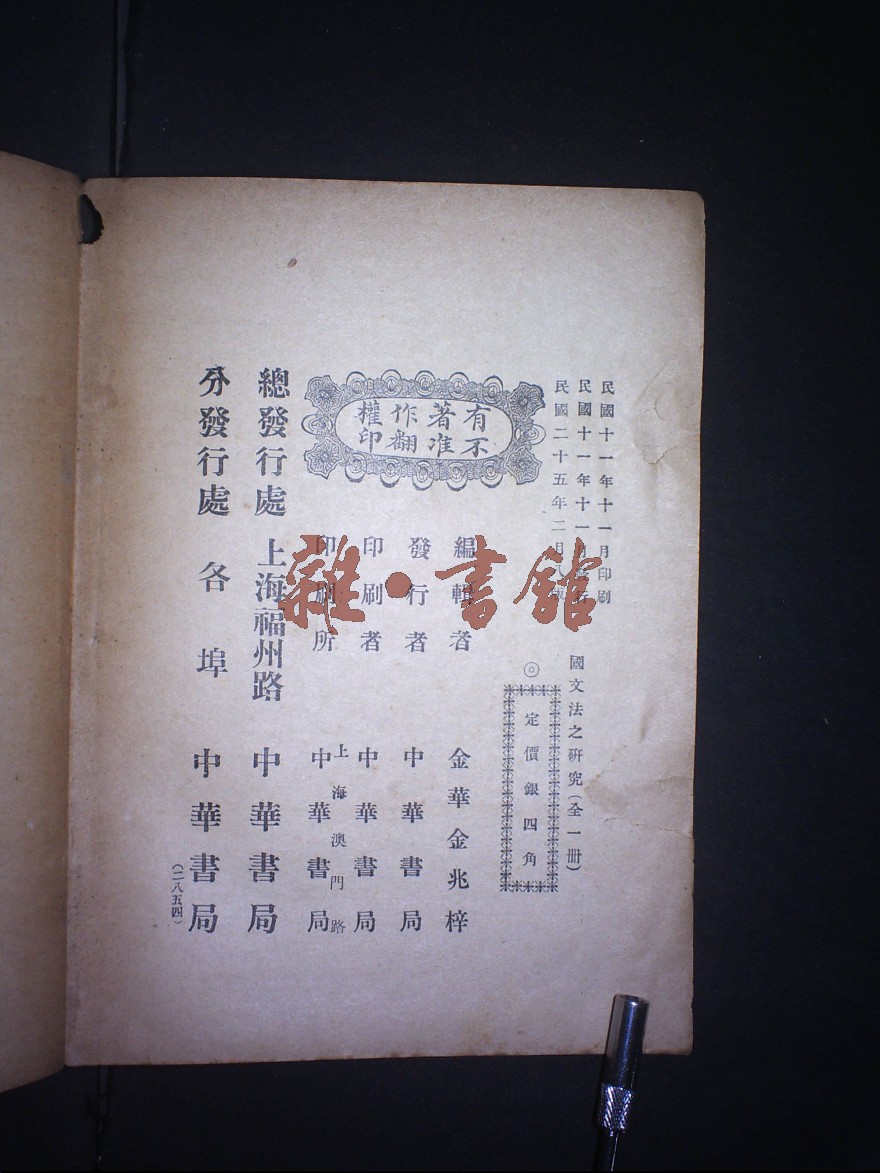 民國十一年十一月印刷
民國十一年十一月發行
民國二十五年二月
國文法之研究(全一冊)
◎定價銀四角
有著作權
不准翻印
編輯者 金華金兆梓
發行者 中華書局
印刷者 中華書局
上海澳門路
印刷所 中華書局
總發行處 上海福州路 中華書局
分發行處 各埠 中華書局
(二八五四)
雜·書館